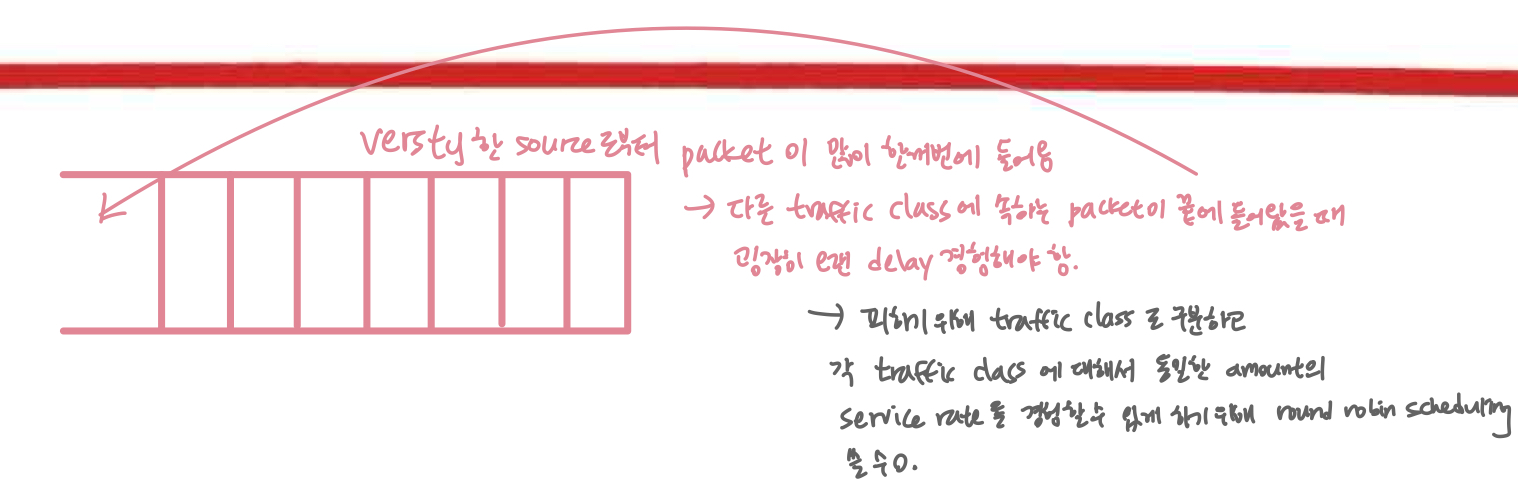 versty한 source로부터 packet이 많이 한꺼번에 들어옴
→ 다른 traffic class에 속하는 packet이 끝에 들어왔을 때
굉장히 오랜 delay 경험해야 함.
→ 피하기 위해 traffic class로 구분하고
각 traffic class에 대해서 동일한 amount의
service rate를 경험할 수 있게 하기 위해 round robin scheduling
쓸 수 O.